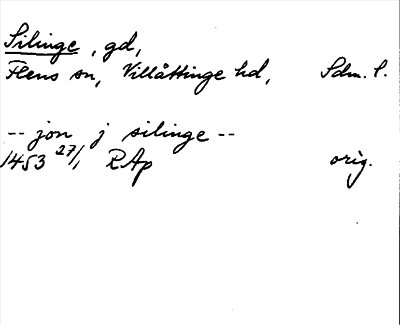 Silinge, gd,
Flens sn, Villåttinge hd, Sdm. l.
-- jon j silinge --
1453 27/1 RAp orig.